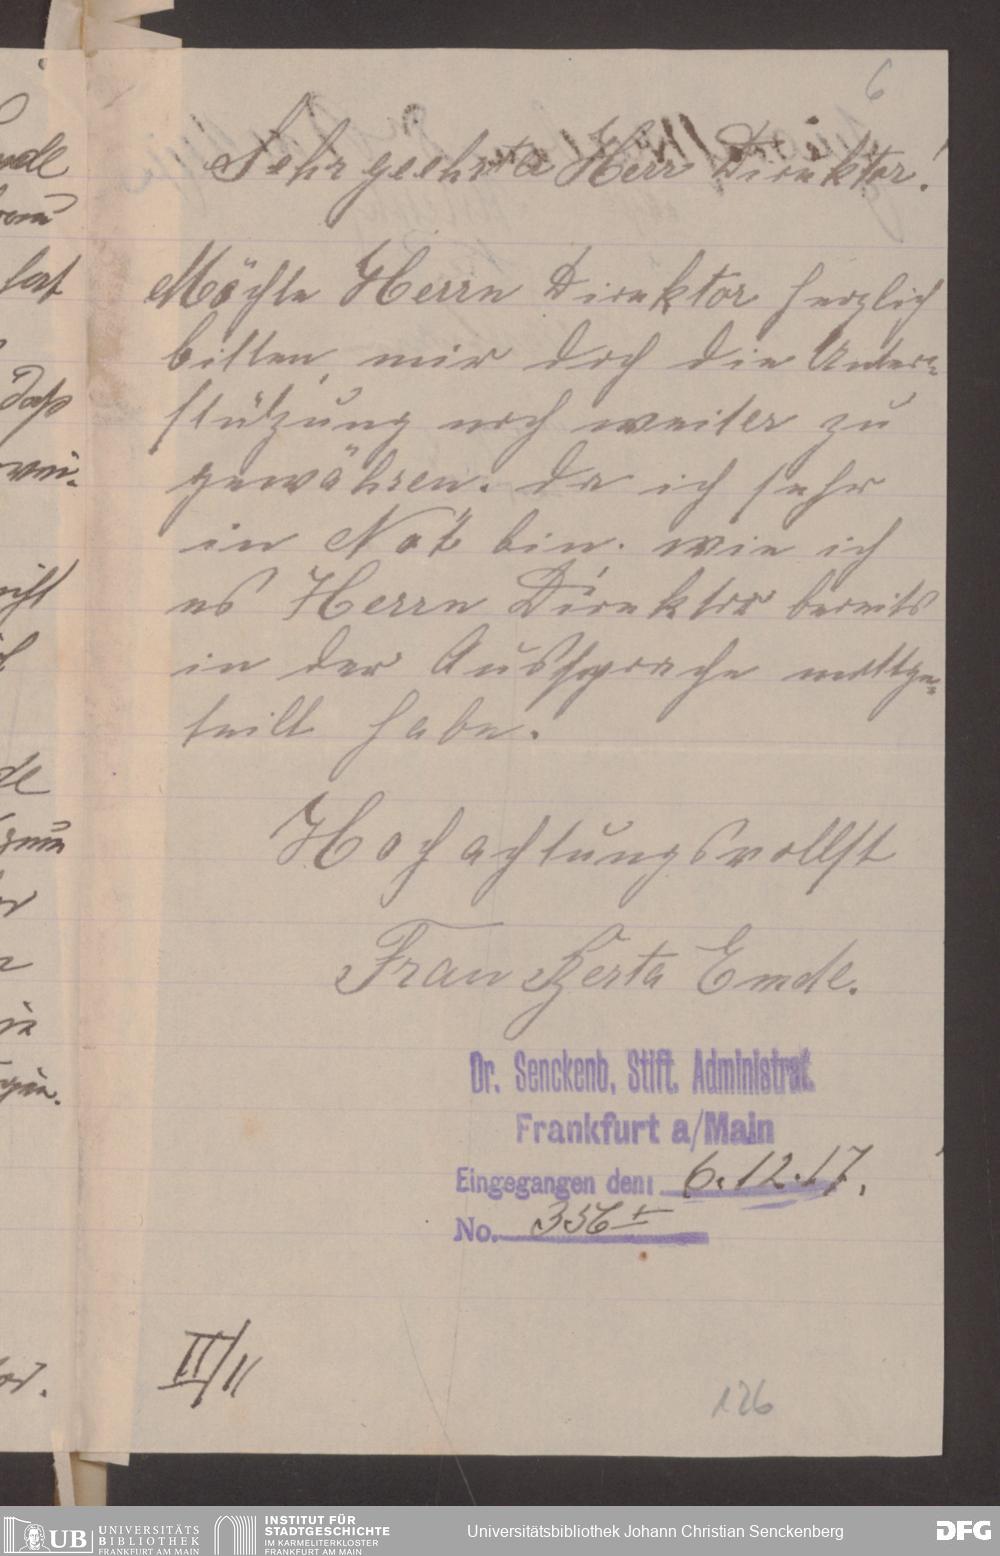 6
Sehr geehrter Herr Direktor!
Möchte Herrn Direktor herzlich
bitten, mir doch die Unter-
stützung noch weiter zu
gewähren. da ich sehr
in Not bin. wie ich
es Herrn Direktor bereits
in der Aussprache mittge-
teilt habe.
Hochachtungsvollst
Frau Berta Emde.
Dr. Senckenb. Stift. Administrat.
Frankfurt a/Main
Eingegangen den: 6.12.17.
No. 356
II/11
126
UB UNIVERSITÄTS
BIBLIOTHEK
FRANKFURT AM MAIN
INSTITUT FÜR
STADTGESCHICHTE
IM KARMELITERKLOSTER
FRANKFURT AM MAIN
Universitätsbibliothek Johann Christian Senckenberg
DFG